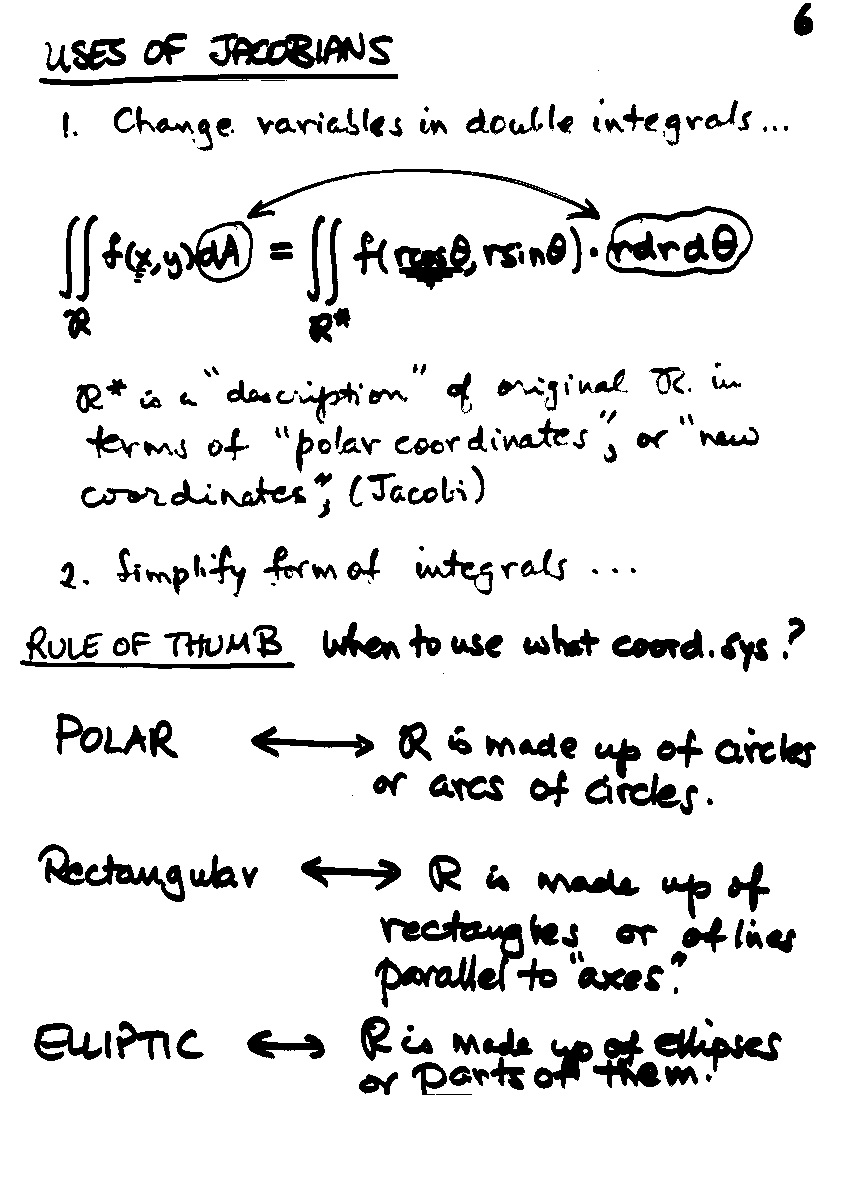 6
USES OF JACOBIANS
1. Change variables in double integrals...
∬ f(x,y) dA = ∬ f(rcosθ, rsinθ) · r dr dθ
R R*
R* is a "description" of original R in
terms of "polar coordinates", or "new
coordinates", (Jacobi)
2. Simplify form of integrals ...
RULE OF THUMB When to use what coord. sys.?
POLAR ⟷ R is made up of circles
or arcs of circles.
Rectangular ⟷ R is made up of
rectangles or of lines
parallel to "axes."
ELLIPTIC ⟷ R is made up of ellipses
or parts of them.